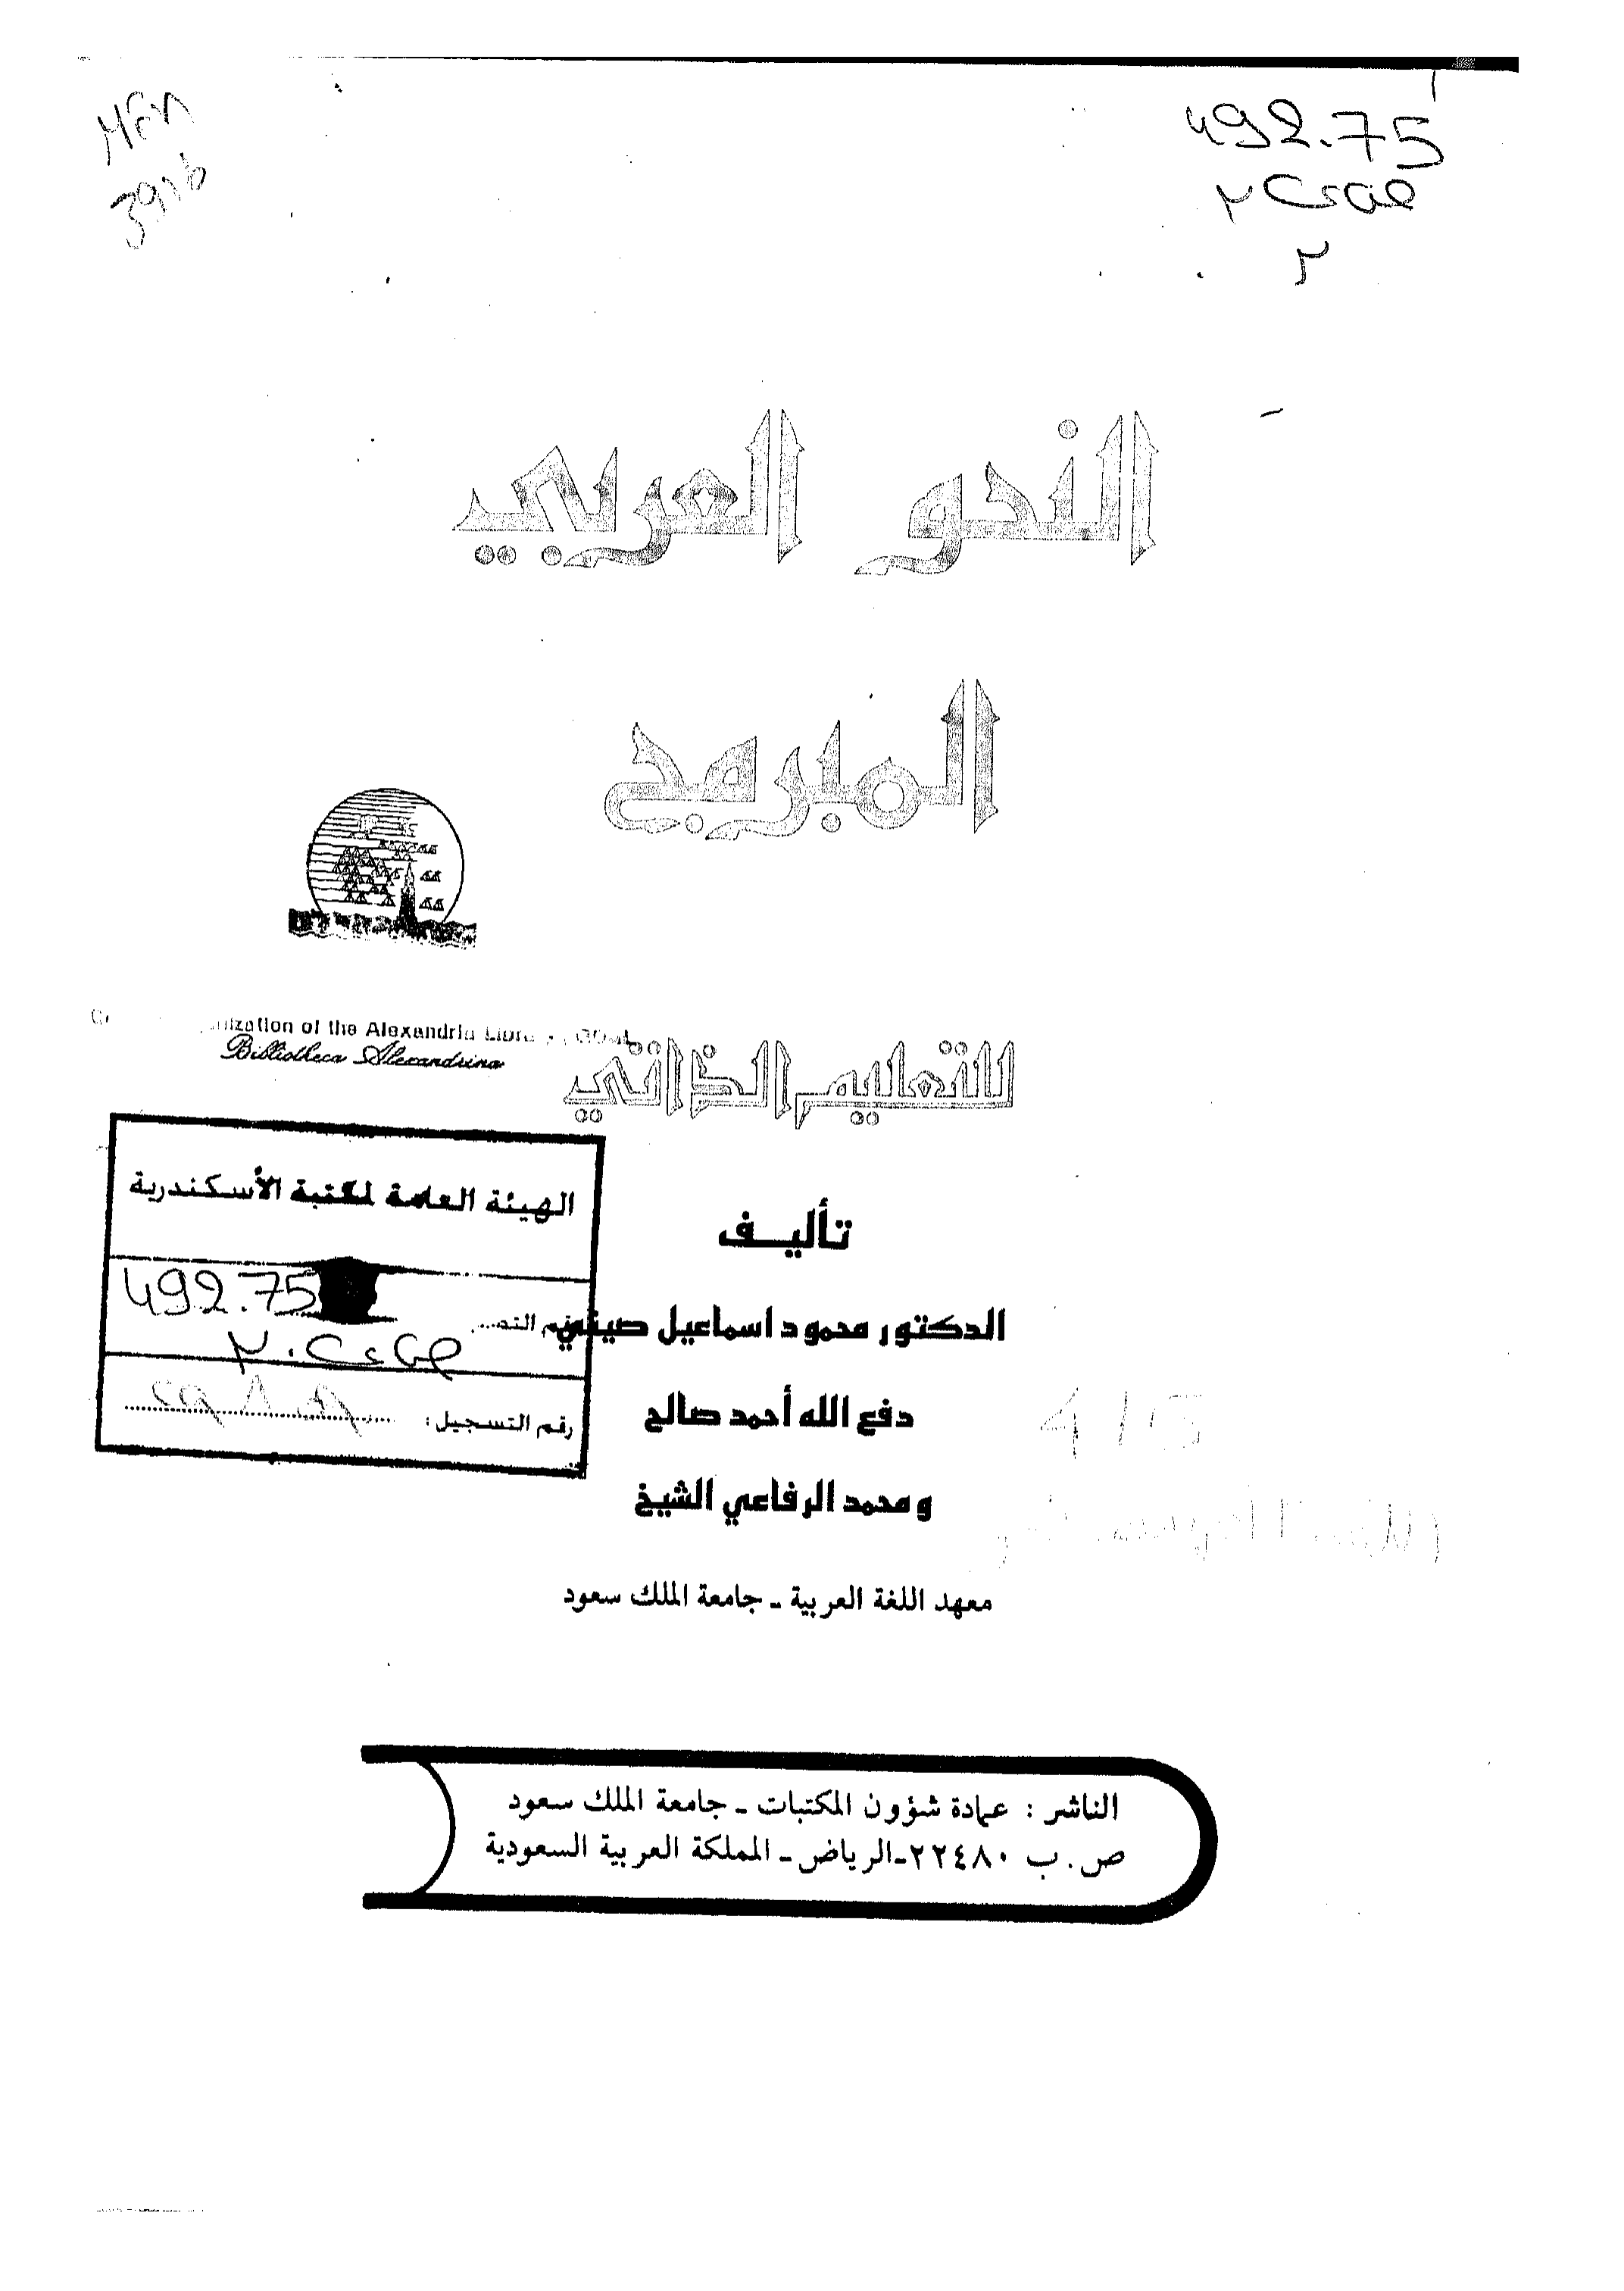 492.75
النحو العربي
المبرمج
General Organization of the Alexandria Library (GOAL)
Bibliotheca Alexandrina
للتعليم الذاتي
الهيئة العامة لمكتبة الأسكندرية
492.75
رقم التسجيل:
تأليف
الدكتور محمود اسماعيل صيني
دفع الله أحمد صالح
و محمد الرفاعي الشيخ
معهد اللغة العربية - جامعة الملك سعود
الناشر : عمادة شؤون المكتبات - جامعة الملك سعود
ص.ب ٢٢٤٨٠-الرياض - المملكة العربية السعودية